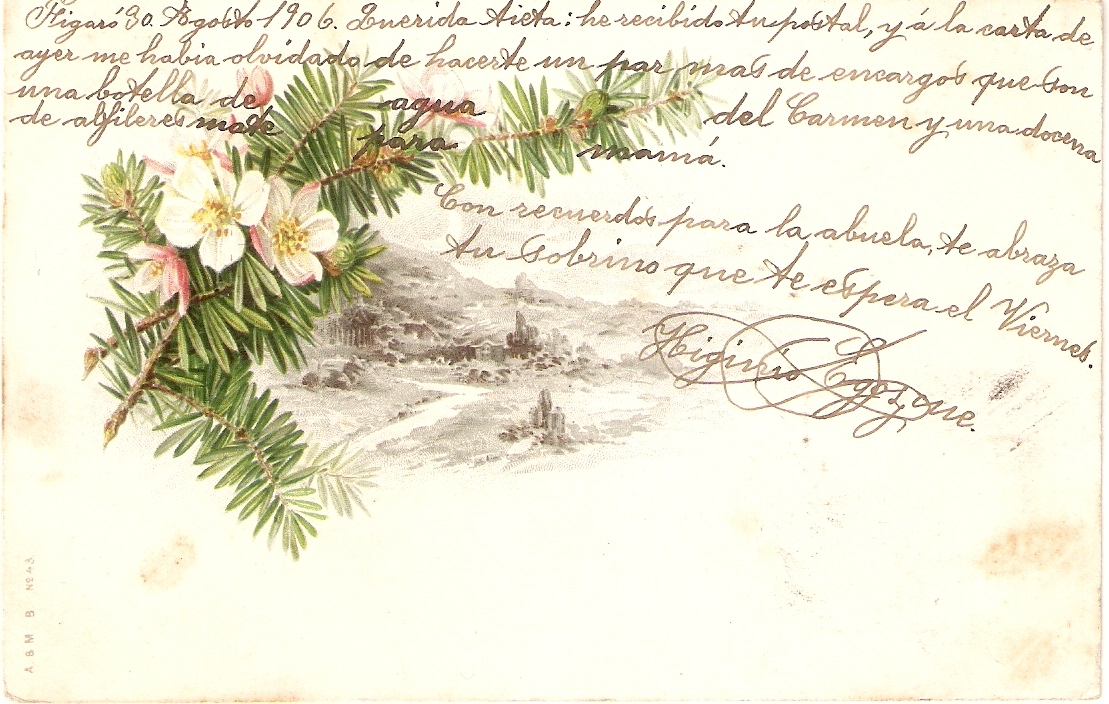 Figaró 30. Agosto 1906. Querida tieta: he recibido tu postal, y á la carta de
ayer me habia olvidado de hacerte un par mas de encargos que son
una botella de agua del Carmen y una docena
de alfileres mate para mamá.
Con recuerdos para la abuela, te abraza
tu sobrino que te espera el Viernes.
Higinio Egozcue.
A B M B Nº 43